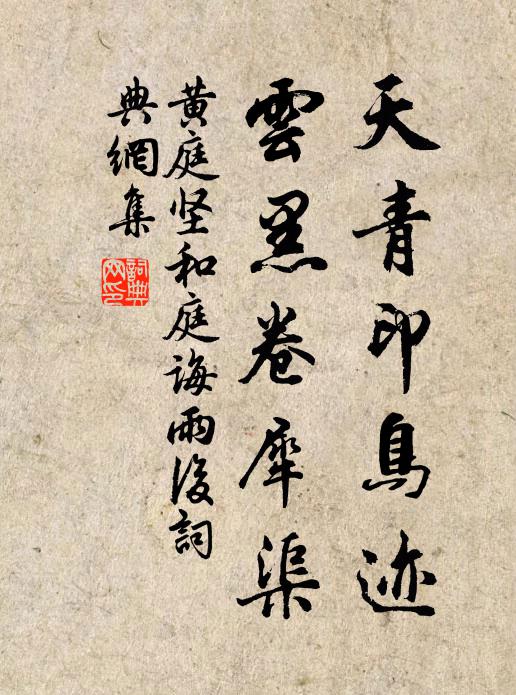 天青印鳥迹
雲黑卷犀渠
黄庭坚和庭誨雨後詞
典網集
詞典網印